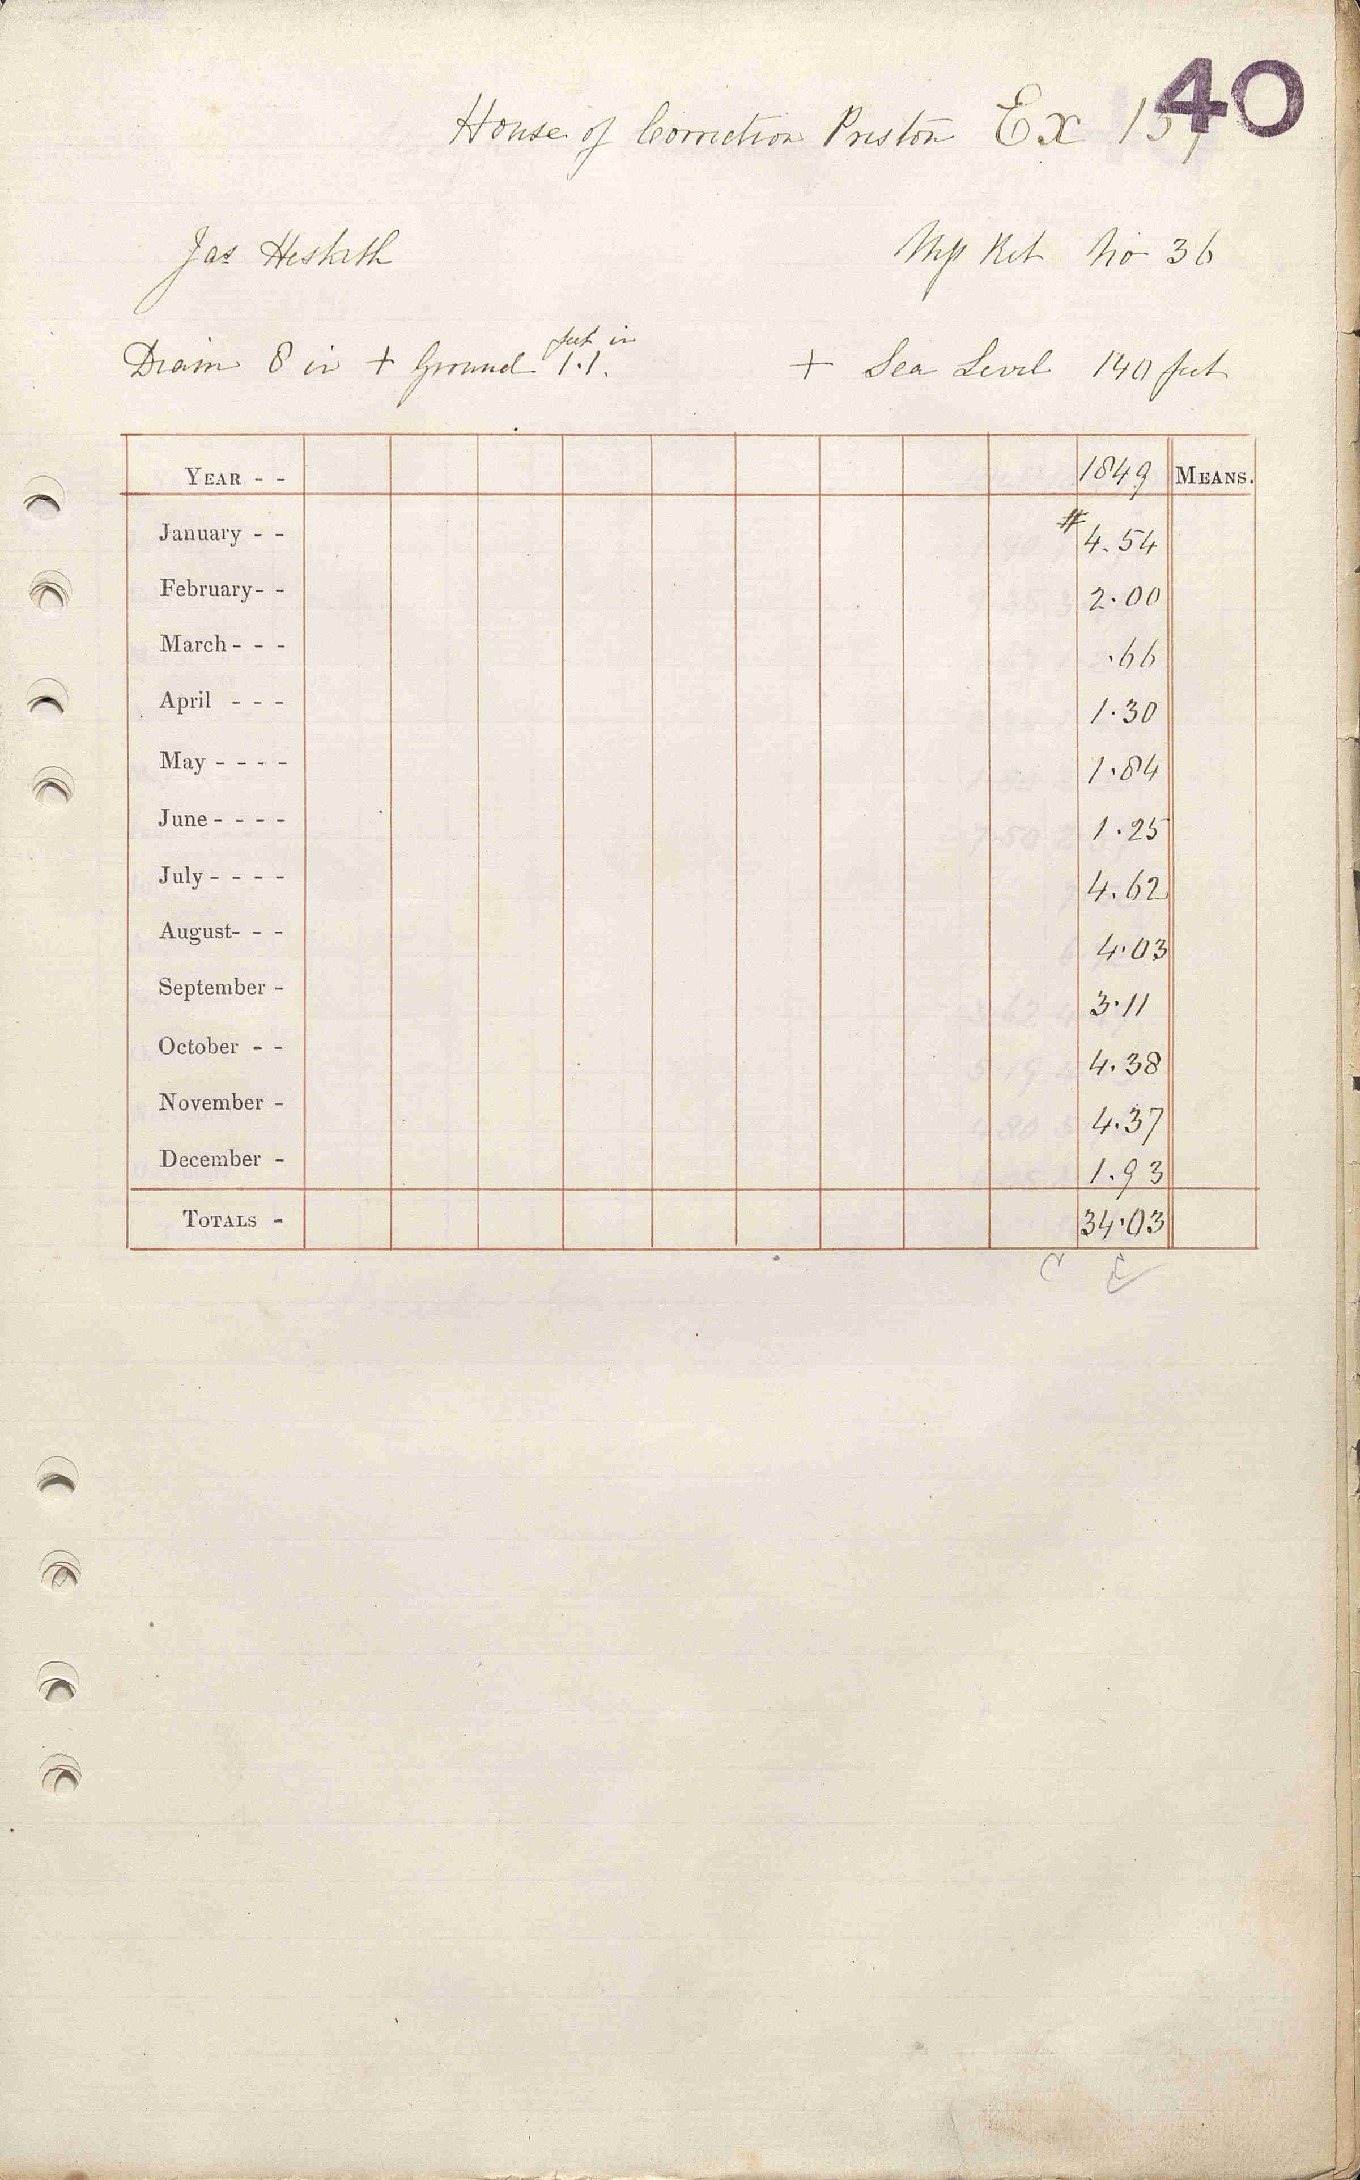 40
House of Correction Preston Ex
Jas Hesketh
No 36
feet in
Diam 8 in + Ground 1.1.
+ Sea Level 140 feet
YEAR - - 1849 MEANS.
January - - # 4.54
February- - 2.00
March- - - .66
April - - - 1.30
May - - - - 1.84
June- - - - 1.25
July- - - - 4.62
August- - - 4.03
September - 3.11
October - - 4.38
November - 4.37
December - 1.93
TOTALS - 34.03